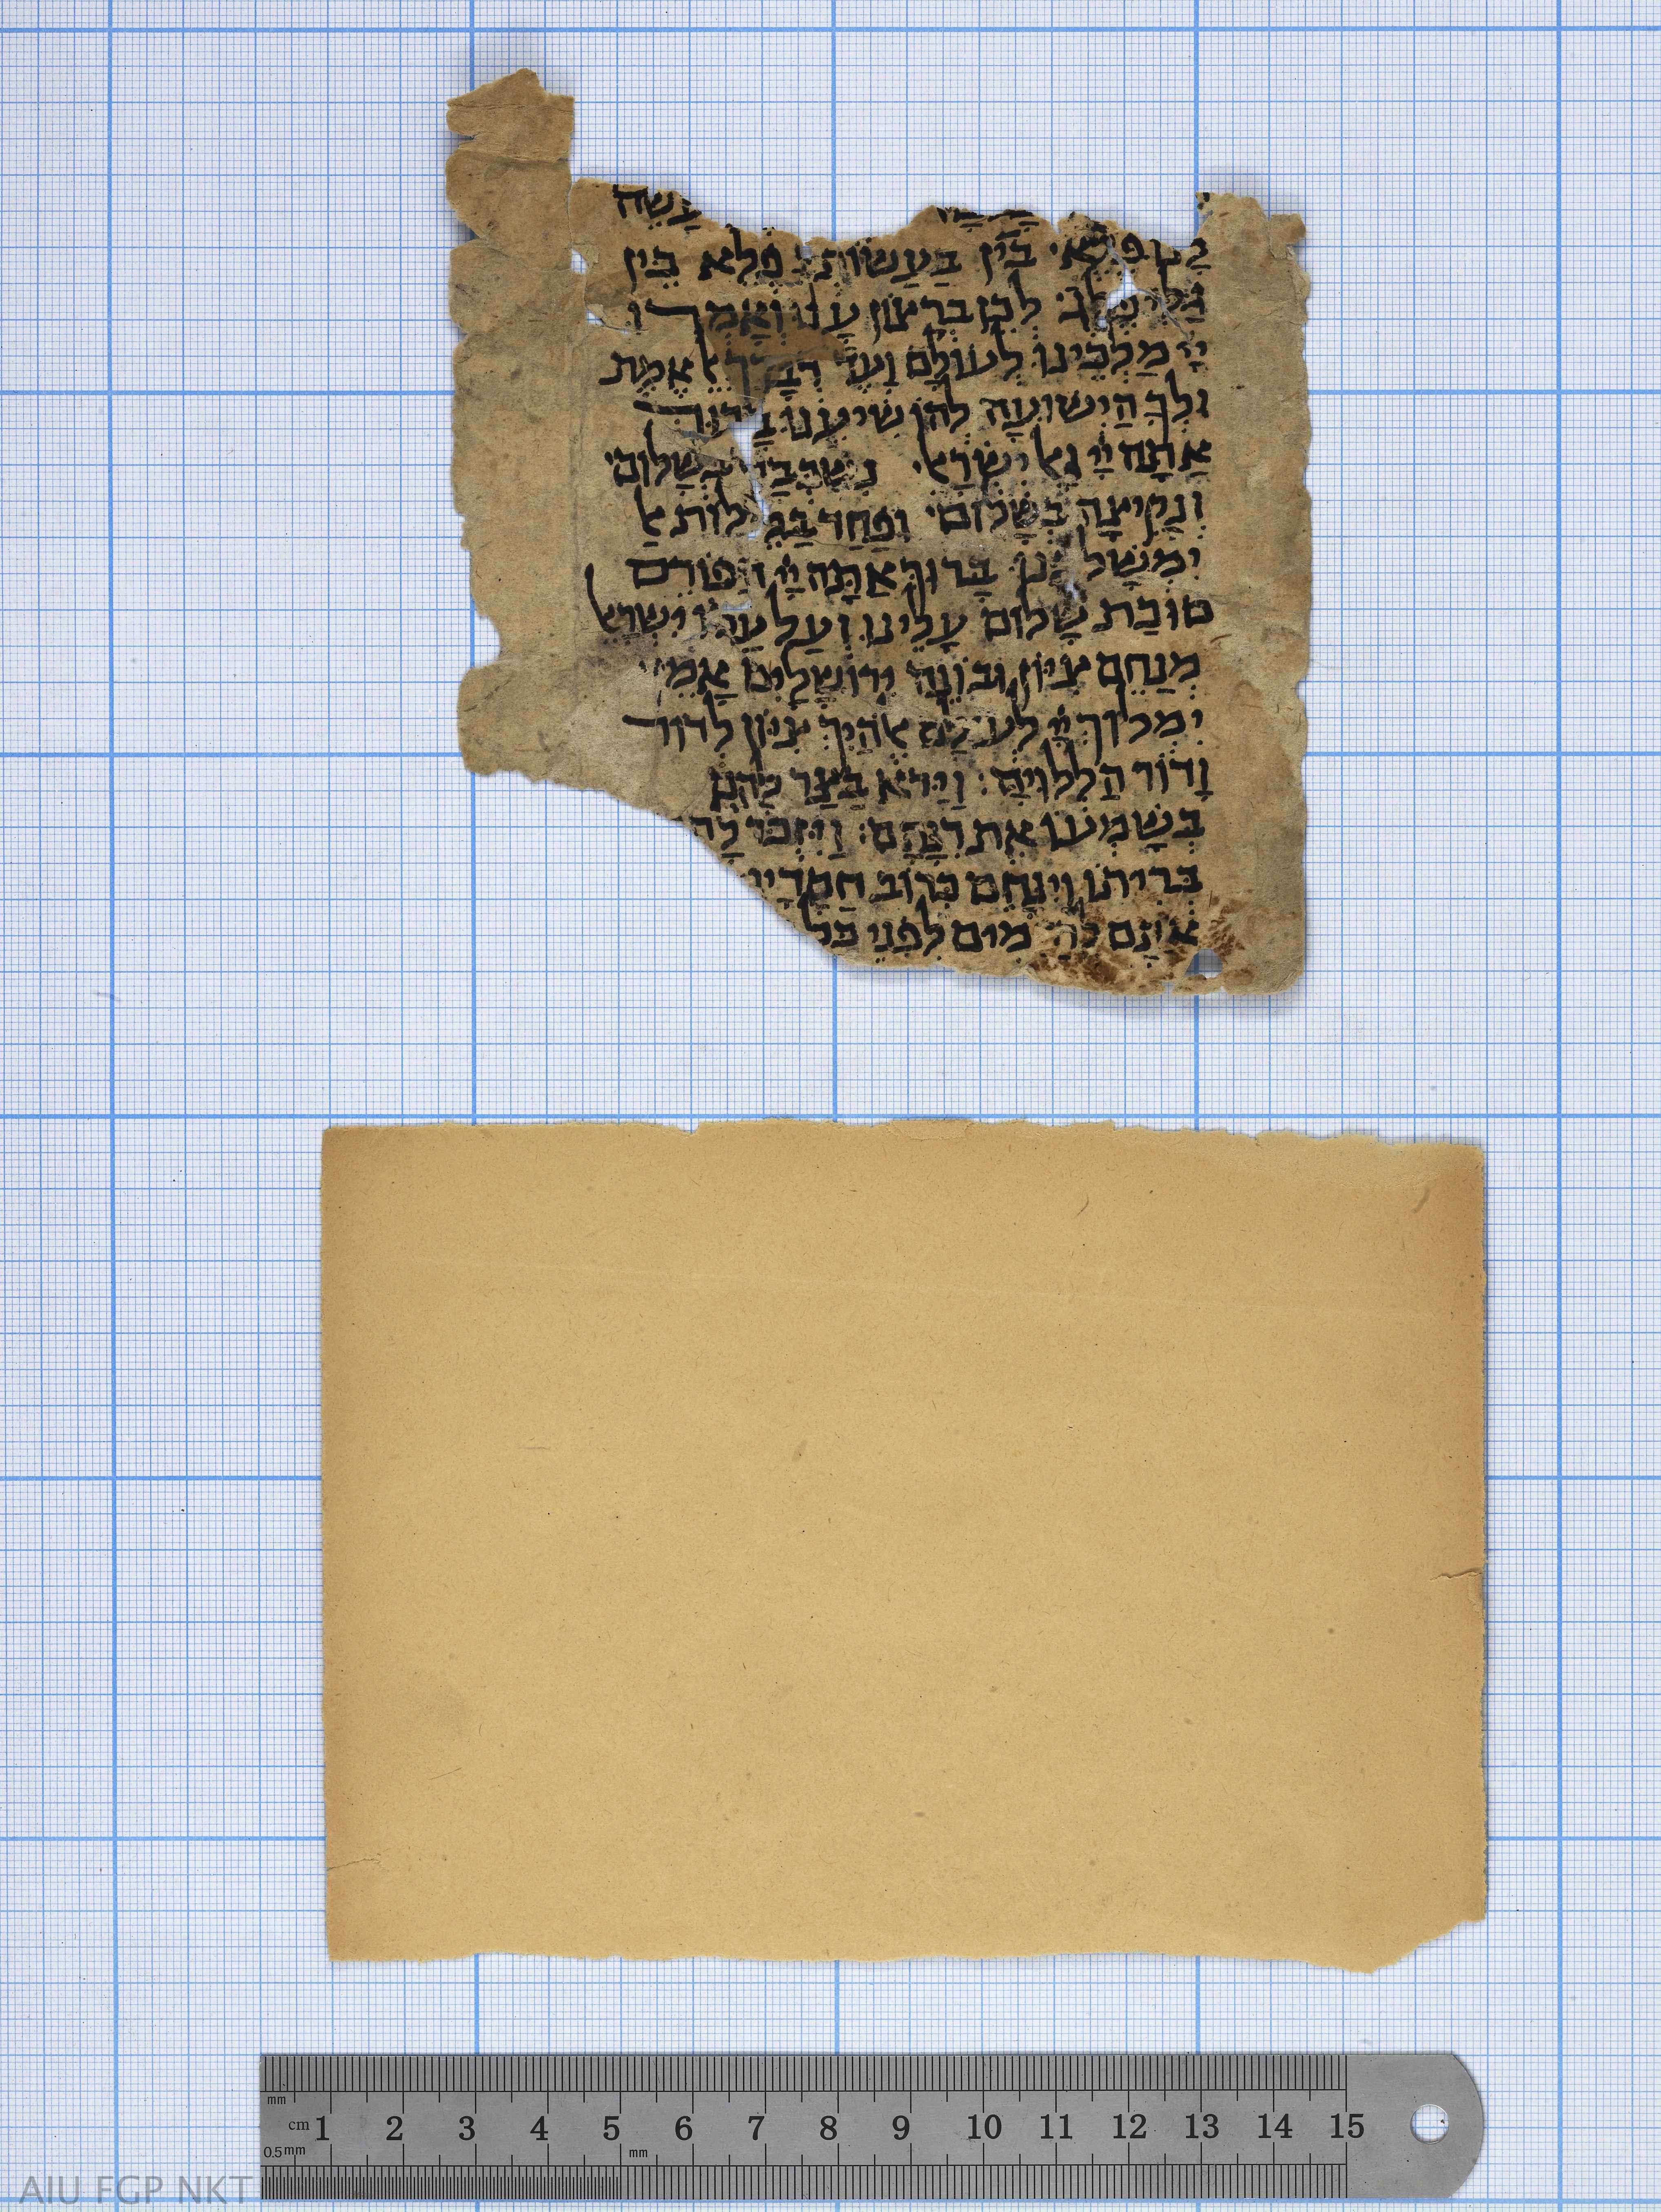 עָשָׂה
בֵּין בַּעֲשׂוֹת פֶלֶא בֵין
גלי לכן ברצון ענו וְאָמְרוּ
יְיָ מַלְכֵּינוּ לְעוֹלָם וָעֶד אֱמֶת
וּלְךָ הַיְשׁוּעָה לְהוֹשִׁיעֵנוּ בָּרוּך
אַתָּה יְיָ גאל ישראל נִשְׁכְּבָה בְּשָׁלוֹם
וְנָקִיצָה בְּשָׁלוֹם וּפַחַד בַּלֵּילוֹת אַל
יִמְשָׁל בָּנוּ בָּרוּךְ אַתָּה יְיָ הַפּוֹרֵס
סוּכַּת שָׁלוֹם עָלֵינוּ וְעַל עַמּוֹ יִשְׂרָאֵל
מְנַחֵם צִיּוֹן וּבוֹנֶה יְרוּשָׁלַיִם אָמֵן
יִמְלוֹךְ יְיָ לְעוֹלָם אֱלֹהַיִךְ צִיּוֹן לְדוֹר
וָדוֹר הַלְלוּיָהּ: וַיַּרְא בַּצַּר לָהֶם
בְּשָׁמְעוֹ אֶת רִנָּתָם: וַיִּזְכֹּר לָהֶם
בְּרִיתוֹ וַיִּנָּחֵם כְּרוֹב חֲסָדָיו
אוֹתָם לְרַחֲמִים לִפְנֵי כָּל
mm
cm 1 2 3 4 5 6 7 8 9 10 11 12 13 14 15
0.5mm mm
AIU FGP NKT